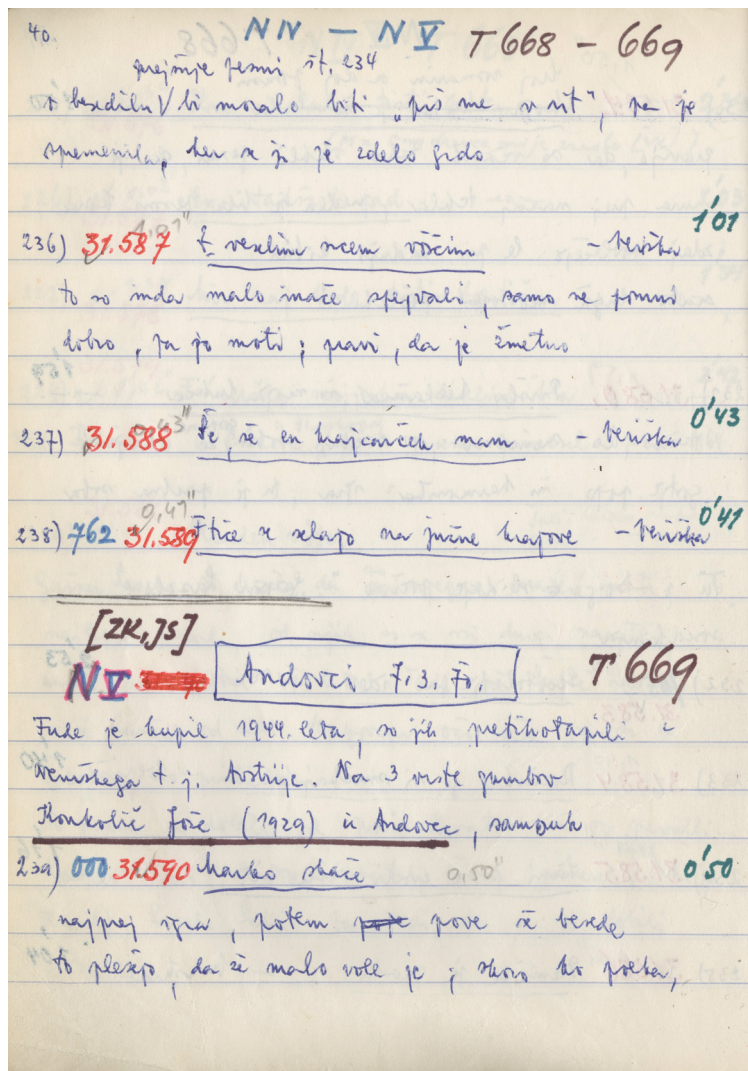 40. N IV — N V T 668 - 669
prejšnje pesmi št. 234
v besedilu bi moralo biti "piš me v rit", pa je
spremenila, ker se ji je zdelo grdo
1,01"
236) 31.587 Z veselim srcem voščim - Veriška 1'01
to so inda malo inače spejvali, samo ne pomni
dobro, pa jo moti; pravi, da je žmetno
0,43"
237) 31.588 Še, še en krajcarček mam - Veriška 0'43
0,41"
238) 762 31.589 Ftice se selajo na južne krajove - Veriška 0'41
[ZK, JS]
N V Andovci 7. 3. 70. T 669
Fude je kupil 1944. leta, so jih pretihotapili z
nemškega t. j. Avstrije. Na 3 vrste gumbov
Konkolič Jože (1929) iz Andovec, samouk
239) 000 31.590 Marko skače 0,50" 0'50
najprej igra, potem poje pove še besede
to plešejo, da že malo vole je; skoro ko polka,